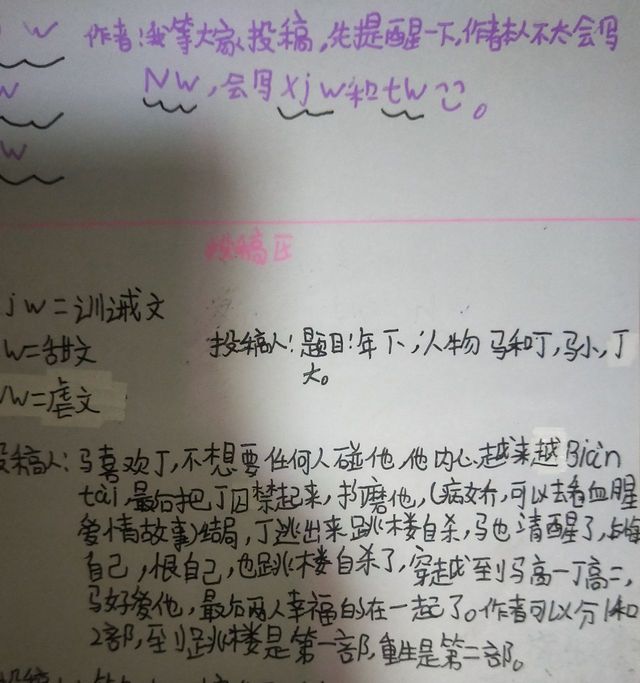 w 作者:我等大家投稿,先提醒一下,作者本人不太会写
w NW,会写xjw和tw。
w
投稿区
jw=训诫文
w=甜文
投稿人:题目:年下,人物马和丁,马小,丁
大。
W=虐文
投稿人:马喜欢丁,不想要任何人碰他,他内心越来越Biàn
tài,最后把丁囚禁起来,折磨他,(病文,可以去看血腥
爱情故事)结局,丁逃出来跳楼自杀,马也清醒了,
自己,恨自己,也跳楼自杀了,穿越到马高一丁高二,
马好爱他,最后两人幸福的在一起了。作者可以分1和
2部,到跳楼是第一部,重生是第二部。